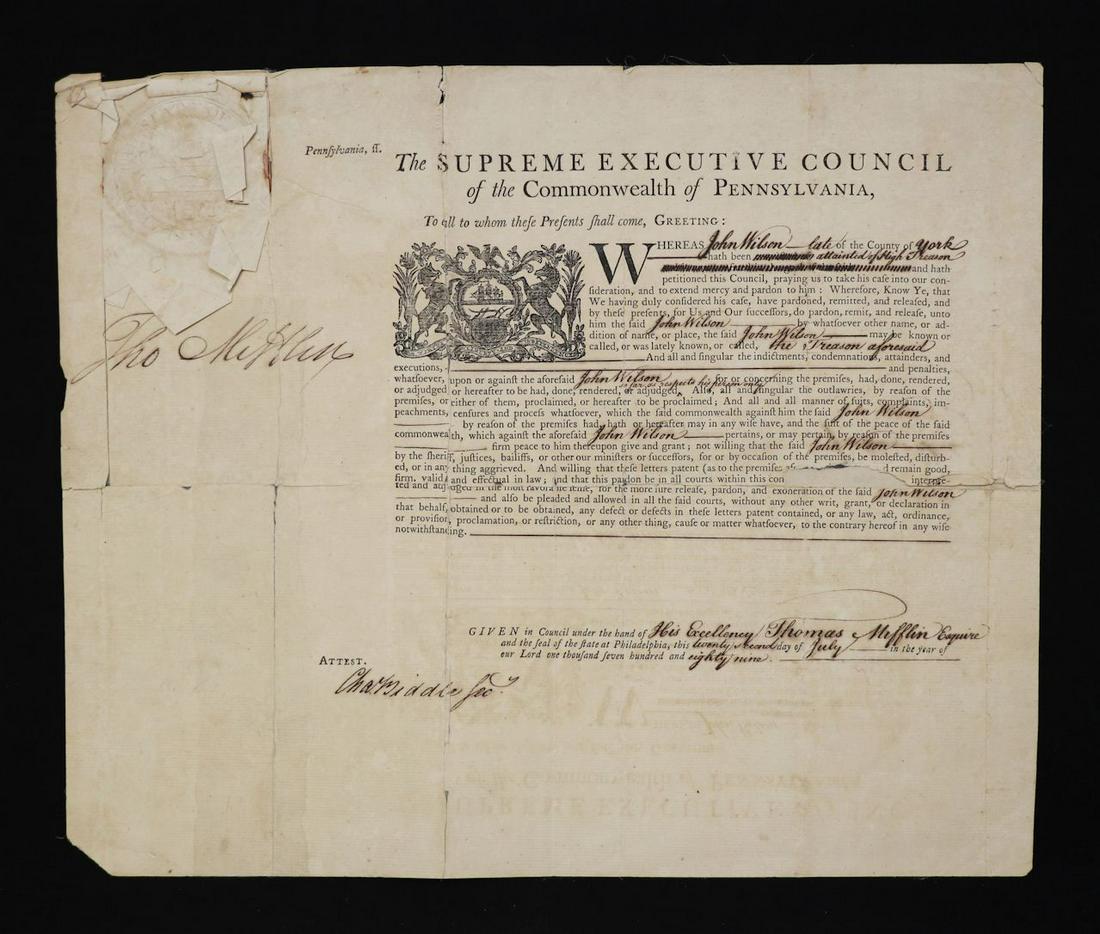 Pennſylvania, ſſ.
The SUPREME EXECUTIVE COUNCIL
of the Commonwealth of PENNSYLVANIA,
To all to whom theſe Preſents ſhall come, GREETING:
WHEREAS John Wilson late of the County of York
hath been attainted of High Treason
and hath
petitioned this Council, praying us to take his caſe into our con-
ſideration, and to extend mercy and pardon to him: Wherefore, Know Ye, that
We having duly conſidered his caſe, have pardoned, remitted, and releaſed, and
by theſe preſents, for Us and Our ſucceſſors, do pardon, remit, and releaſe, unto
him the ſaid John Wilson by whatſoever other name, or ad-
dition of name, or place, the ſaid John Wilson may be known or
called, or was lately known, or called, the Treason aforesaid
And all and ſingular the indictments, condemnations, attainders, and
executions, and penalties,
whatſoever, upon or againſt the aforeſaid John Wilson for or concerning the premiſes, had, done, rendered,
so far as respects his person only
or adjudged or hereafter to be had, done, rendered, or adjudged, Alſo, all and ſingular the outlawries, by reaſon of the
premiſes, or either of them, proclaimed, or hereafter to be proclaimed; And all and all manner of ſuits, complaints, im-
peachments, cenſures and proceſs whatſoever, which the ſaid commonwealth againſt him the ſaid John Wilson
by reaſon of the premiſes had, hath or hereafter may in any wiſe have, and the ſuit of the peace of the ſaid
commonwealth, which againſt the aforeſaid John Wilson pertains, or may pertain, by reaſon of the premiſes
firm peace to him thereupon give and grant; not willing that the ſaid John Wilson
by the ſheriff, juſtices, bailiffs, or other our miniſters or ſucceſſors, for or by occaſion of the premiſes, be moleſted, diſturb-
ed, or in any thing aggrieved. And willing that theſe letters patent (as to the premiſes remain good,
firm, valid and effectual in law; and that this pardon be in all courts within this con interpre-
ted and adjudged in the moſt favorable ſenſe, for the more ſure releaſe, pardon, and exoneration of the ſaid John Wilson
and alſo be pleaded and allowed in all the ſaid courts, without any other writ, grant, or declaration in
that behalf, obtained or to be obtained, any defect or defects in theſe letters patent contained, or any law, act, ordinance,
or proviſion, proclamation, or reſtriction, or any other thing, cauſe or matter whatſoever, to the contrary hereof in any wiſe
notwithſtanding.
Tho Mifflin
GIVEN in Council under the hand of His Excellency Thomas Mifflin Esquire
and the ſeal of the ſtate at Philadelphia, this twenty second day of July in the year of
our Lord one thouſand ſeven hundred and eighty nine.
ATTEST.
Cha. Biddle Secy